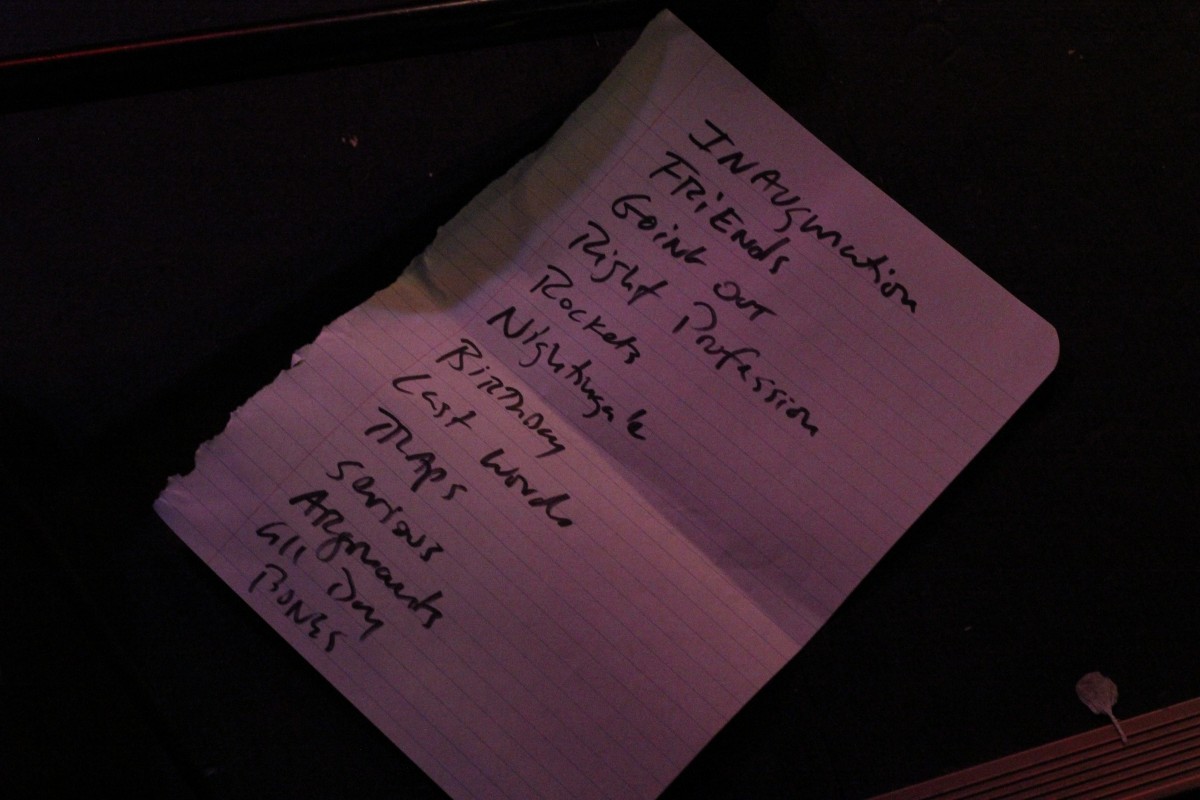 INAUguration
FRiENds
GoiNg out
Right Profession
Rockets
Nightingale
BiRThDay
Last words
TRAPs
Serious
ARguments
all Day
BoNes